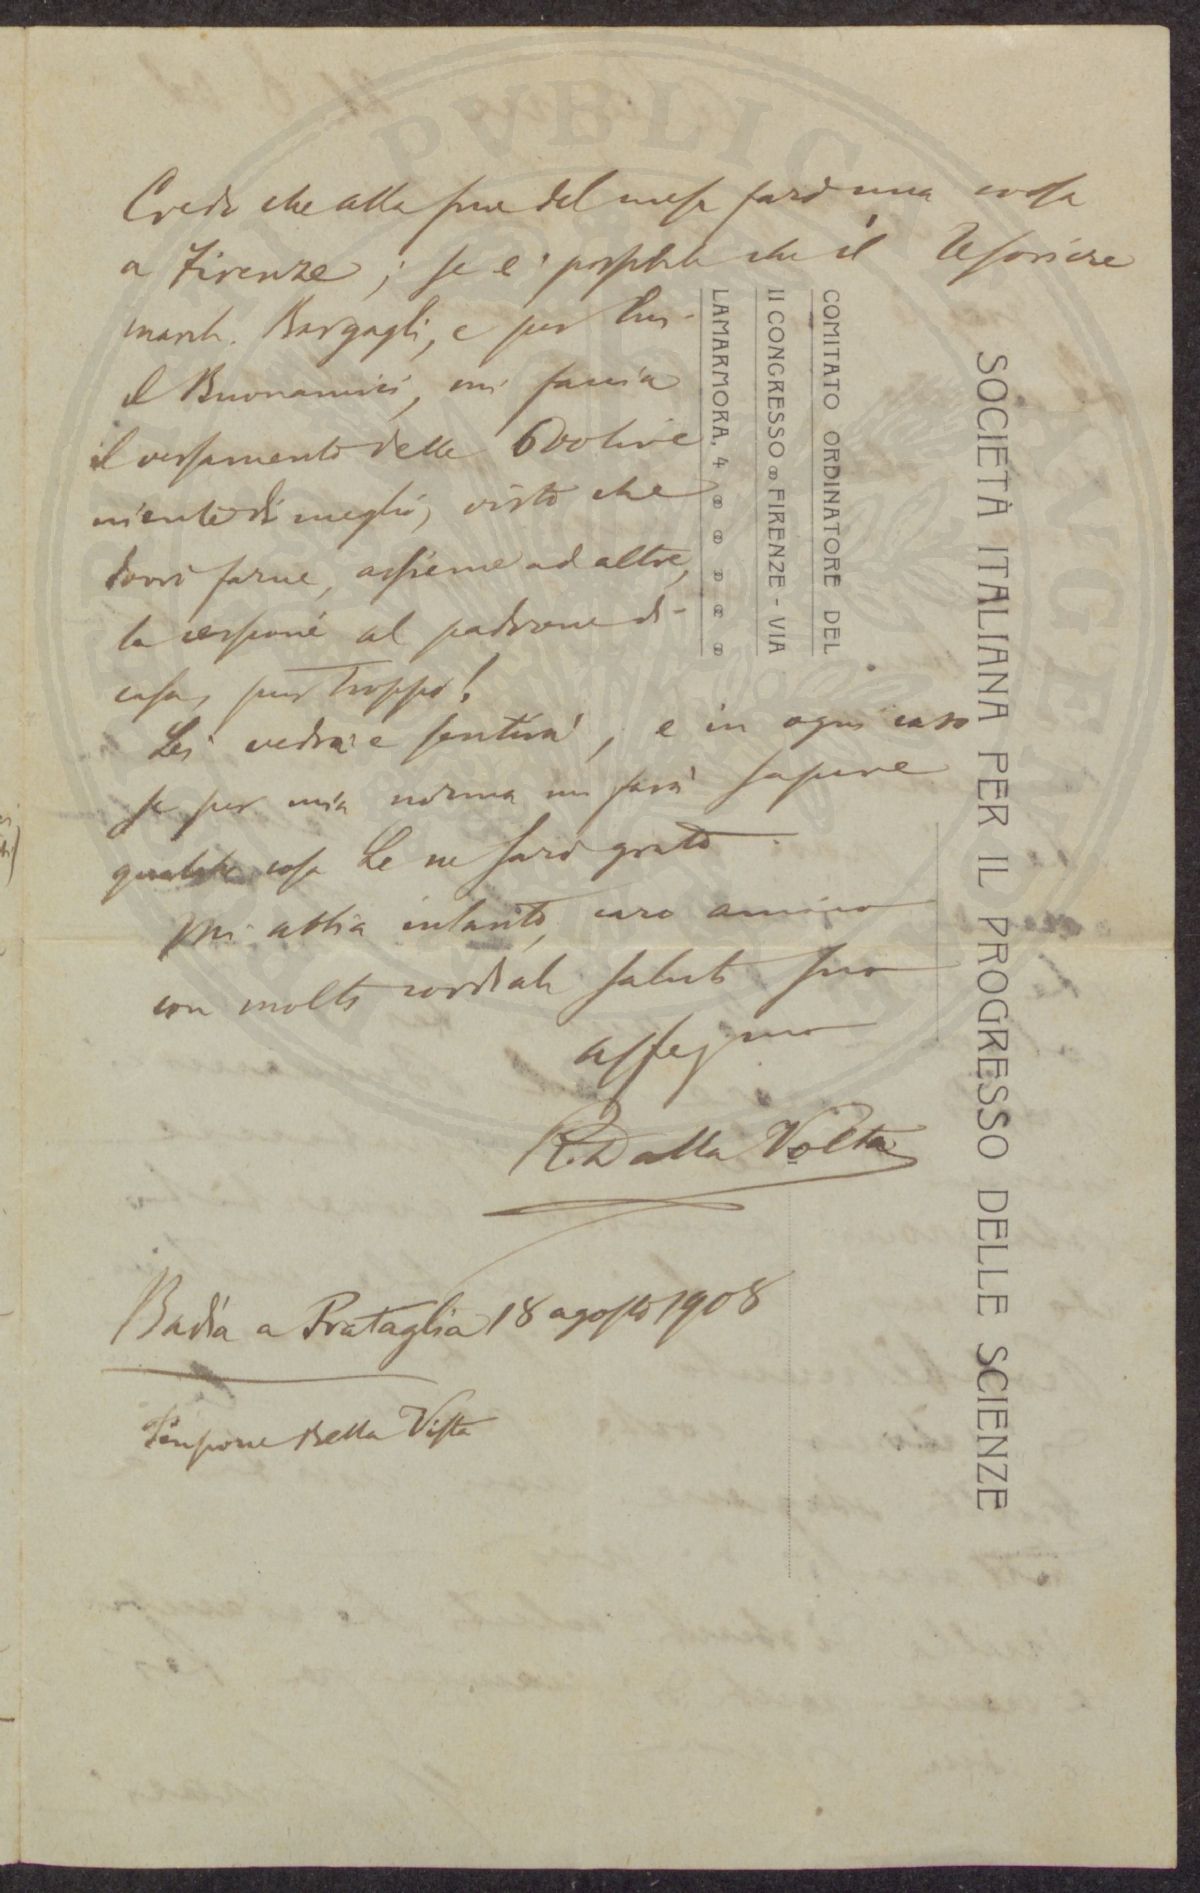 Credo che alla fine del mese farò una corsa
a Firenze; se è possibile che il Tesoriere
march. Bargagli, e per lui
il Buonamici, mi faccia
il versamento delle 600 lire
niente di meglio, visto che
dovrò farne, assieme ad altre,
la cessione al padrone di
casa, pur troppo!
Lei vedrà e sentirà, e in ogni caso
se per mia norma mi farà sapere
qualche cosa Le ne sarò grato.
Mi abbia intanto, caro amico
con molti cordiali saluti suo
affezmo
R. Dalla Volta
Badia a Prataglia 18 agosto 1908
Pensione Bella Vista
SOCIETÀ ITALIANA PER IL PROGRESSO DELLE SCIENZE
COMITATO ORDINATORE DEL
II CONGRESSO FIRENZE - VIA
LAMARMORA, 4
PVBLICA